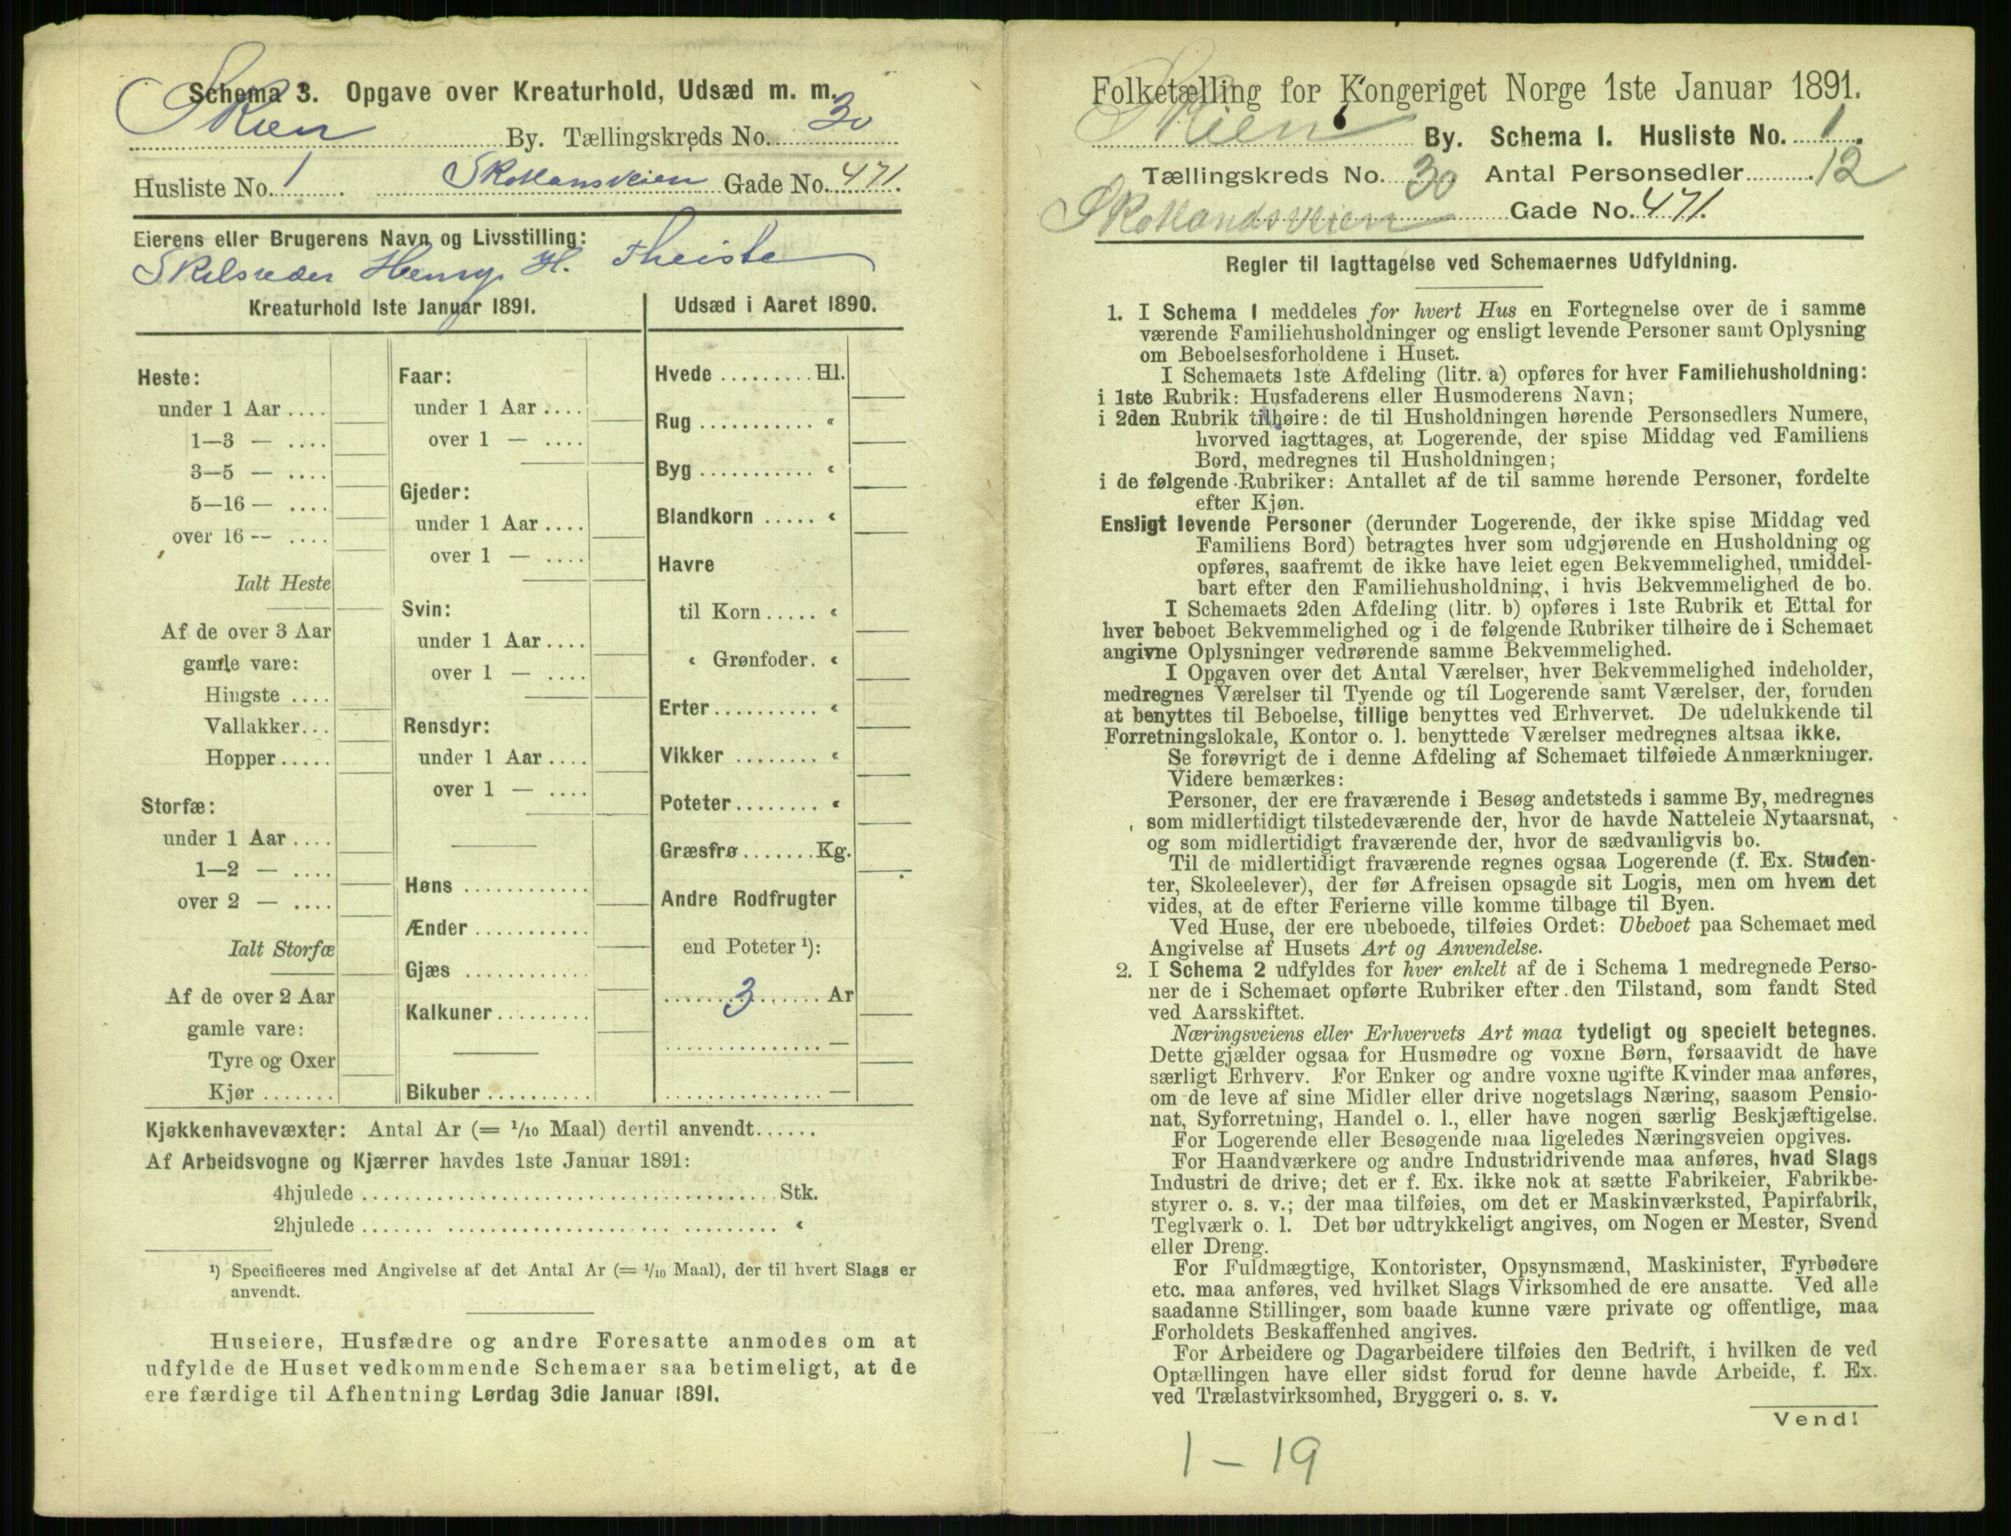 Schema 3. Opgave over Kreaturhold, Udsæd m. m.
Skien By. Tællingskreds No. 30
Husliste No. 1 Skotlansveien Gade No. 471.
Eierens eller Brugerens Navn og Livsstilling:
Skibsreder Henry H. Theiste
Kreaturhold 1ste Januar 1891.
Heste:
under 1 Aar ....
1—3 — ....
3—5 — ....
5—16 — ....
over 16 -- ....
Ialt Heste
Af de over 3 Aar
gamle vare:
Hingste ....
Vallakker...
Hopper.....
Storfæ:
under 1 Aar ....
1—2 — ....
over 2 — ....
Ialt Storfæ
Af de over 2 Aar
gamle vare:
Tyre og Oxer
Kjør .......
Faar:
under 1 Aar ....
over 1 — ....
Gjeder:
under 1 Aar ....
over 1 — ....
Svin:
under 1 Aar ....
over 1 — ....
Rensdyr:
under 1 Aar ....
over 1 — ....
Høns ............
Ænder ...........
Gjæs ............
Kalkuner.........
Bikuber ..........
Udsæd i Aaret 1890.
Hvede ......... Hl.
Rug ........... «
Byg ........... «
Blandkorn ..... «
Havre
til Korn ..... «
« Grønfoder. «
Erter.......... «
Vikker ........ «
Poteter........ «
Græsfrø.......Kg.
Andre Rodfrugter
end Poteter ¹):
3 Ar
............... —
............... —
Kjøkkenhavevæxter: Antal Ar (= 1/10 Maal) dertil anvendt......
Af Arbeidsvogne og Kjærrer havdes 1ste Januar 1891:
4hjulede ........................................ Stk.
2hjulede ........................................ «
¹) Specificeres med Angivelse af det Antal Ar (= 1/10 Maal), der til hvert Slags er
anvendt.
Huseiere, Husfædre og andre Foresatte anmodes om at
udfylde de Huset vedkommende Schemaer saa betimeligt, at de
ere færdige til Afhentning Lørdag 3die Januar 1891.
Folketælling for Kongeriget Norge 1ste Januar 1891.
Skien By. Schema I. Husliste No. 1.
Tællingskreds No. 30 Antal Personsedler 12
Skotlandsveien Gade No. 471.
Regler til Iagttagelse ved Schemaernes Udfyldning.
1. I Schema 1 meddeles for hvert Hus en Fortegnelse over de i samme
værende Familiehusholdninger og ensligt levende Personer samt Oplysning
om Beboelsesforholdene i Huset.
I Schemaets 1ste Afdeling (litr. a) opføres for hver Familiehusholdning:
i 1ste Rubrik: Husfaderens eller Husmoderens Navn;
i 2den Rubrik tilhøire: de til Husholdningen hørende Personsedlers Numere,
hvorved iagttages, at Logerende, der spise Middag ved Familiens
Bord, medregnes til Husholdningen;
i de følgende Rubriker: Antallet af de til samme hørende Personer, fordelte
efter Kjøn.
Ensligt levende Personer (derunder Logerende, der ikke spise Middag ved
Familiens Bord) betragtes hver som udgjørende en Husholdning og
opføres, saafremt de ikke have leiet egen Bekvemmelighed, umiddel-
bart efter den Familiehusholdning, i hvis Bekvemmelighed de bo.
I Schemaets 2den Afdeling (litr. b) opføres i 1ste Rubrik et Ettal for
hver beboet Bekvemmelighed og i de følgende Rubriker tilhøire de i Schemaet
angivne Oplysninger vedrørende samme Bekvemmelighed.
I Opgaven over det Antal Værelser, hver Bekvemmelighed indeholder,
medregnes Værelser til Tyende og til Logerende samt Værelser, der, foruden
at benyttes til Beboelse, tillige benyttes ved Erhvervet. De udelukkende til
Forretningslokale, Kontor o. l. benyttede Værelser medregnes altsaa ikke.
Se forøvrigt de i denne Afdeling af Schemaet tilføiede Anmærkninger.
Videre bemærkes:
Personer, der ere fraværende i Besøg andetsteds i samme By, medregnes
som midlertidigt tilstedeværende der, hvor de havde Natteleie Nytaarsnat,
og som midlertidigt fraværende der, hvor de sædvanligvis bo.
Til de midlertidigt fraværende regnes ogsaa Logerende (f. Ex. Studen-
ter, Skoleelever), der før Afreisen opsagde sit Logis, men om hvem det
vides, at de efter Ferierne ville komme tilbage til Byen.
Ved Huse, der ere ubeboede, tilføies Ordet: Ubeboet paa Schemaet med
Angivelse af Husets Art og Anvendelse.
2. I Schema 2 udfyldes for hver enkelt af de i Schema 1 medregnede Perso-
ner de i Schemaet opførte Rubriker efter den Tilstand, som fandt Sted
ved Aarsskiftet.
Næringsveiens eller Erhvervets Art maa tydeligt og specielt betegnes.
Dette gjælder ogsaa for Husmødre og voxne Børn, forsaavidt de have
særligt Erhverv. For Enker og andre voxne ugifte Kvinder maa anføres,
om de leve af sine Midler eller drive nogetslags Næring, saasom Pensio-
nat, Syforretning, Handel o. l., eller have nogen særlig Beskjæftigelse.
For Logerende eller Besøgende maa ligeledes Næringsveien opgives.
For Haandværkere og andre Industridrivende maa anføres, hvad Slags
Industri de drive; det er f. Ex. ikke nok at sætte Fabrikeier, Fabrikbe-
styrer o. s. v.; der maa tilføies, om det er Maskinværksted, Papirfabrik,
Teglværk o. l. Det bør udtrykkeligt angives, om Nogen er Mester, Svend
eller Dreng.
For Fuldmægtige, Kontorister, Opsynsmænd, Maskinister, Fyrbødere
etc. maa anføres, ved hvilket Slags Virksomhed de ere ansatte. Ved alle
saadanne Stillinger, som baade kunne være private og offentlige, maa
Forholdets Beskaffenhed angives.
For Arbeidere og Dagarbeidere tilføies den Bedrift, i hvilken de ved
Optællingen have eller sidst forud for denne havde Arbeide, f. Ex.
ved Trælastvirksomhed, Bryggeri o. s. v.
Vend!
1 — 19